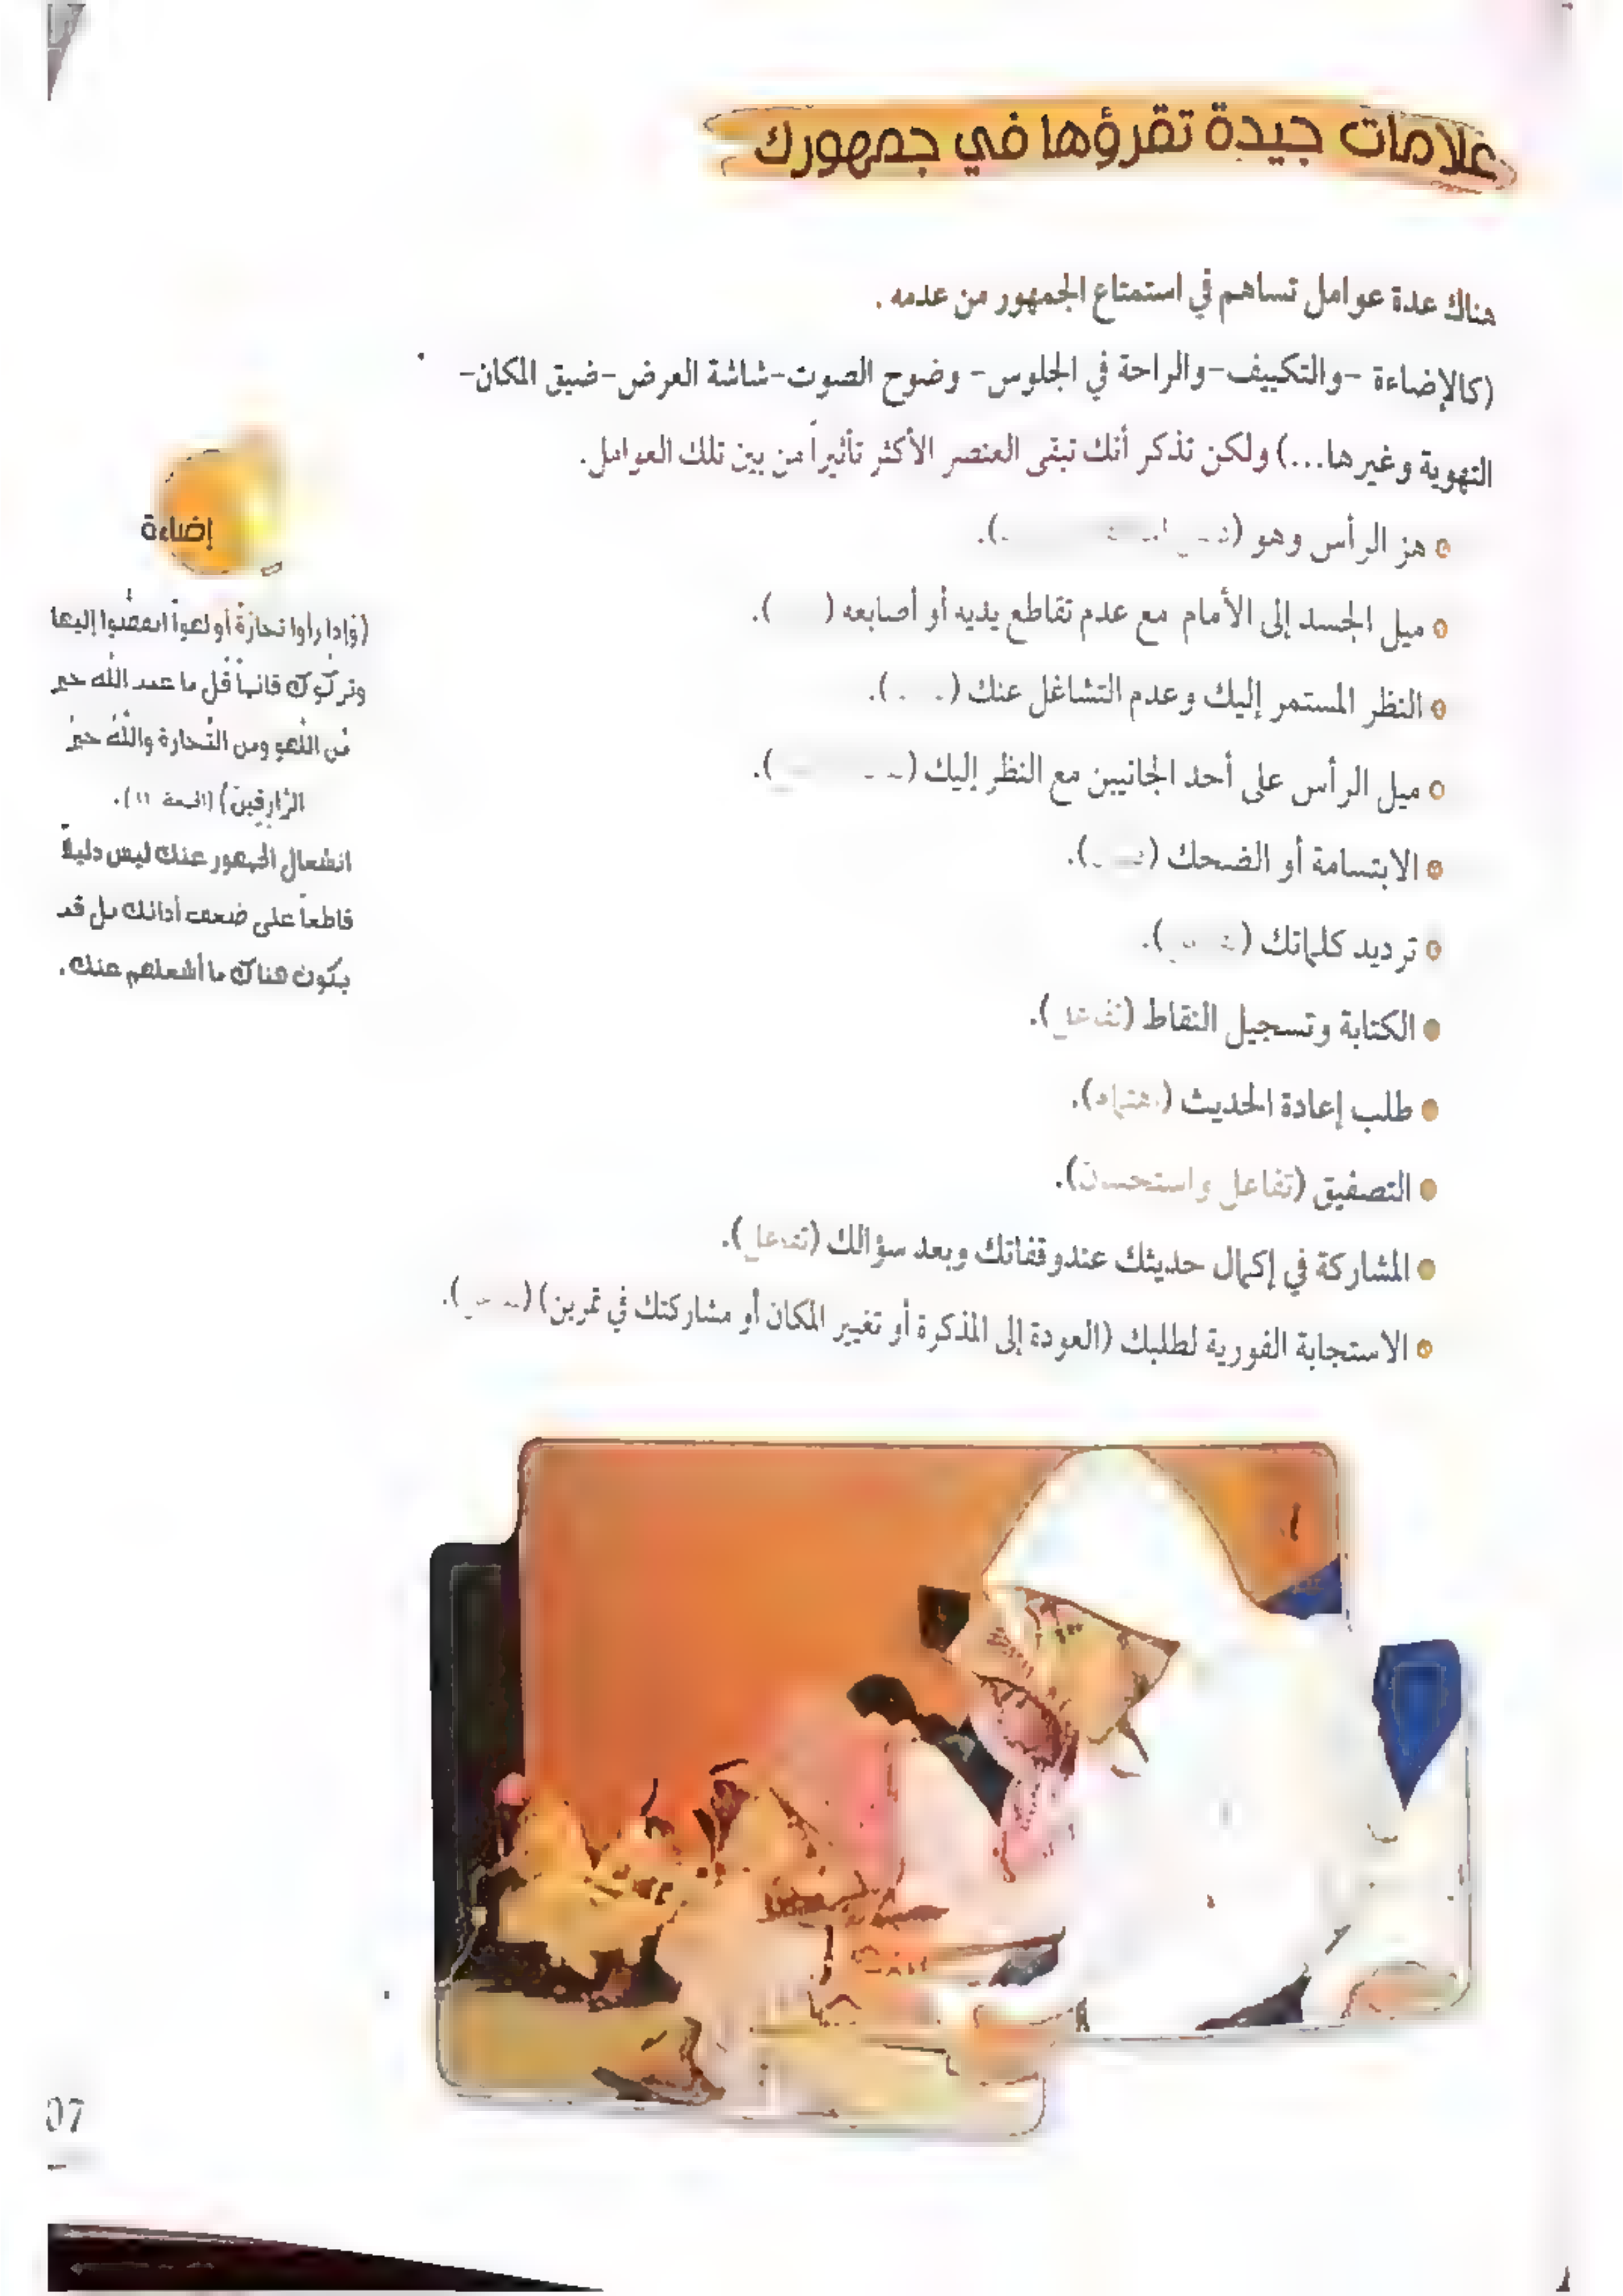 علامات جيدة تقرؤها في جمهورك
هناك عدة عوامل تساهم في استمتاع الجمهور من عدمه .
(كالإضاءة -والتكييف-والراحة في الجلوس- وضوح الصوت-شاشة العرض-ضيق المكان-
التهوية وغيرها...) ولكن تذكر أنك تبقى العنصر الأكثر تأثيراً من بين تلك العوامل.
هز الرأس وهو ( ).
ميل الجسد إلى الأمام مع عدم تقاطع يديه أو أصابعه ( ).
النظر المستمر إليك وعدم التشاغل عنك ( ).
ميل الرأس على أحد الجانبين مع النظر إليك ( ).
الابتسامة أو الضحك ( ).
ترديد كلماتك ( ).
الكتابة وتسجيل النقاط (تفاعل).
طلب إعادة الحديث (اهتمام).
التصفيق (تفاعل واستحسان).
المشاركة في إكمال حديثك عند وقفاتك وبعد سؤالك (تفاعل).
الاستجابة الفورية لطلبك (العودة إلى المذكرة أو تغيير المكان أو مشاركتك في تمرين) ( ).
إضاءة
(وإذا رأوا تجارةً أو لهواً انفضُّوا إليها
وتركُوك قائماً قُل ما عند اللَّه خير
مِّن اللَّهو ومن التِّجارة واللَّهُ خيرُ
الرَّازِقِينَ) (الجمعة ١١).
انشغال الجمهور عنك ليس دليلاً
قاطعاً على ضعف أدائك بل قد
يكون هناك ما أشغلهم عنك.
07